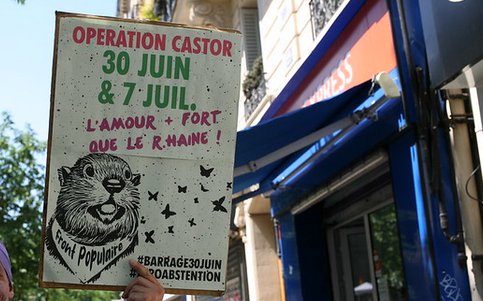 OPERATION CASTOR
30 JUIN
& 7 JUIL.
L'AMOUR + FORT
QUE LE R.HAINE !
Front Populaire
#BARRAGE30JUIN
ROABSTENTION
EXPRESS